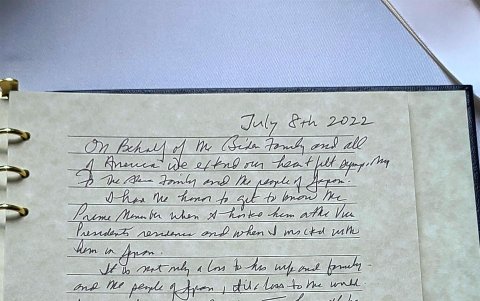 July 8th 2022
On Behalf of the Biden Family and all
of America we extend our heartfelt sympathy
To the Abe Family and the people of Japan.
I had the honor to get to know the
Prime Minister when I hosted him at the Vice
Presidents residence and when I visited with
him in Japan.
It is not only a loss to his wife and family -
and the people of Japan, it's a loss to the world.